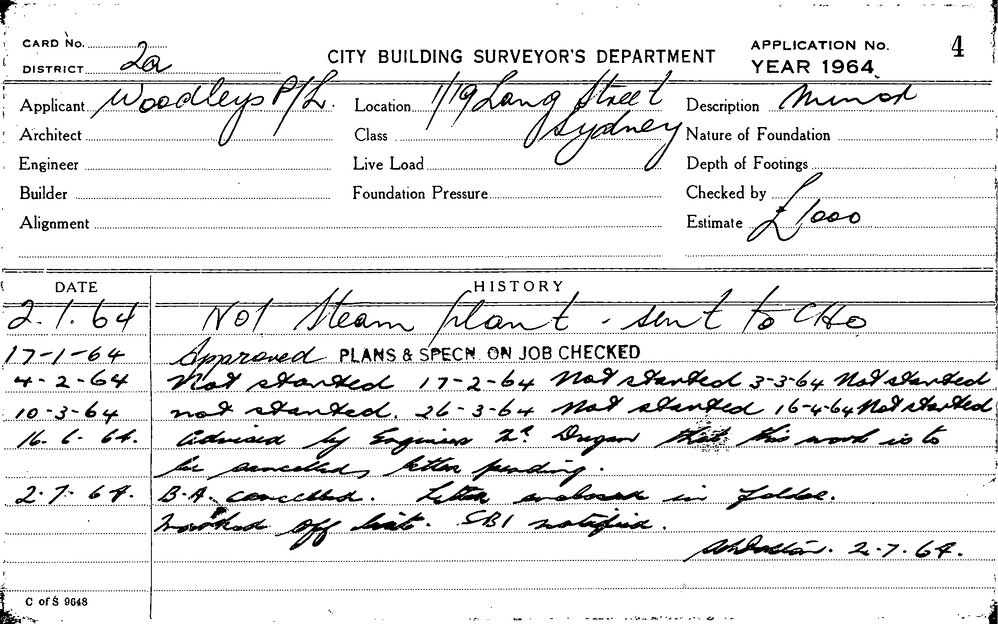 CARD No.
DISTRICT 2a
CITY BUILDING SURVEYOR'S DEPARTMENT
APPLICATION No. 4
YEAR 1964
Applicant Woodleys P/L. Location 1/19 Lang Street Sydney Description Minor
Architect Class Nature of Foundation
Engineer Live Load Depth of Footings
Builder Foundation Pressure Checked by
Alignment Estimate £1000
DATE HISTORY
2.1.64 Not Steam plant - sent to CHO
17-1-64 Approved PLANS & SPECN. ON JOB CHECKED
4-2-64 Not started 17-2-64 Not started 3-3-64 Not started
10-3-64 not started. 26-3-64 Not started 16-4-64 Not started
16.6.64. Advised by Engineer Dugan that this work is to
be cancelled, letter pending.
2.7.64. B.A. cancelled. Letter enclosed in folder.
Marked off list. SBI notified.
2.7.64.
C of S 9648